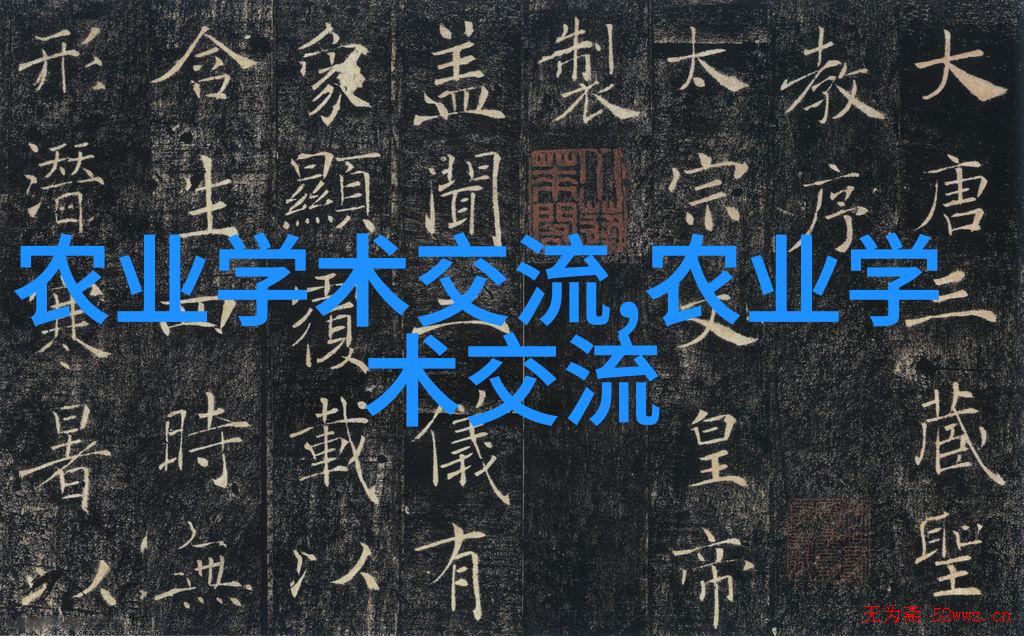 大唐三藏聖
教序
太宗文皇帝
製
盖聞二儀有
象顯覆載以
含生四時無
形潛寒暑以
农业学术交流,农业学
术交流
无为斋 52wwz.cn